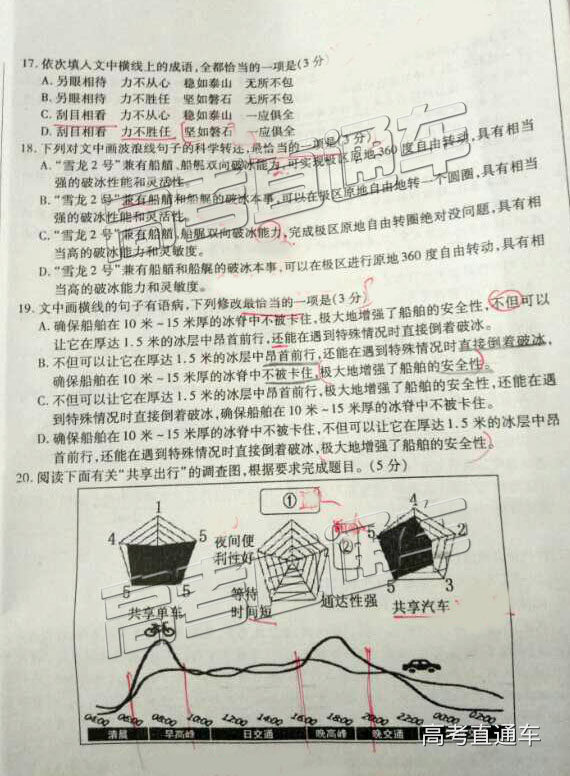 17.依次填入文中横线上的成语,全都恰当的一项是(3分)
A.另眼相待 力不从心 稳如泰山 无所不包
B.另眼相待 力不胜任 坚如磐石 无所不包
C.刮目相看 力不从心 稳如泰山 一应俱全
D.刮目相看 力不胜任 坚如磐石 一应俱全
18.下列对文中画波浪线句子的科学转述,最恰当的一项是(3分)
A.“雪龙2号”兼有船艏、船艉双向破冰能力,可实现极区原地360度自由转动,具有相当
强的破冰性能和灵活性。
B.“雪龙2号”兼有船艏和船艉的破冰本事,可以在极区原地自由地转一个圆圈,具有相当
强的破冰性能和灵活性。
C.“雪龙2号”兼有船艏、船艉双向破冰能力,完成极区原地自由转圈绝对没问题,具有相
当高的破冰能力和灵敏度。
D.“雪龙2号”兼有船艏和船艉的破冰本事,可以在极区进行原地360度自由转动,具有相
当高的破冰能力和灵敏度。
19.文中画横线的句子有语病,下列修改最恰当的一项是(3分)
A.确保船舶在10米~15米厚的冰脊中不被卡住,极大地增强了船舶的安全性,不但可以
让它在厚达1.5米的冰层中昂首前行,还能在遇到特殊情况时直接倒着破冰。
B.不但可以让它在厚达1.5米的冰层中昂首前行,还能在遇到特殊情况时直接倒着破冰,
确保船舶在10米~15米厚的冰脊中不被卡住,极大地增强了船舶的安全性。
C.不但可以让它在厚达1.5米的冰层中昂首前行,极大地增强了船舶的安全性,还能在遇
到特殊情况时直接倒着破冰,确保船舶在10米~15米厚的冰脊中不被卡住。
D.确保船舶在10米~15米厚的冰脊中不被卡住,不但可以让它在厚达1.5米的冰层中昂
首前行,还能在遇到特殊情况时直接倒着破冰,极大地增强了船舶的安全性。
20.阅读下面有关“共享出行”的调查图,根据要求完成题目。(5分)
①
1
4 5
5 5
共享单车
夜间便
利性好
②
等待
时间短
通达性强
4
5 2
5 3
共享汽车
04:00 06:00 08:00 10:00 12:00 14:00 16:00 18:00 20:00 22:00 00:00 02:00
清晨 早高峰 日交通 晚高峰 晚交通
高考直通车
高考直通车
高考直通车